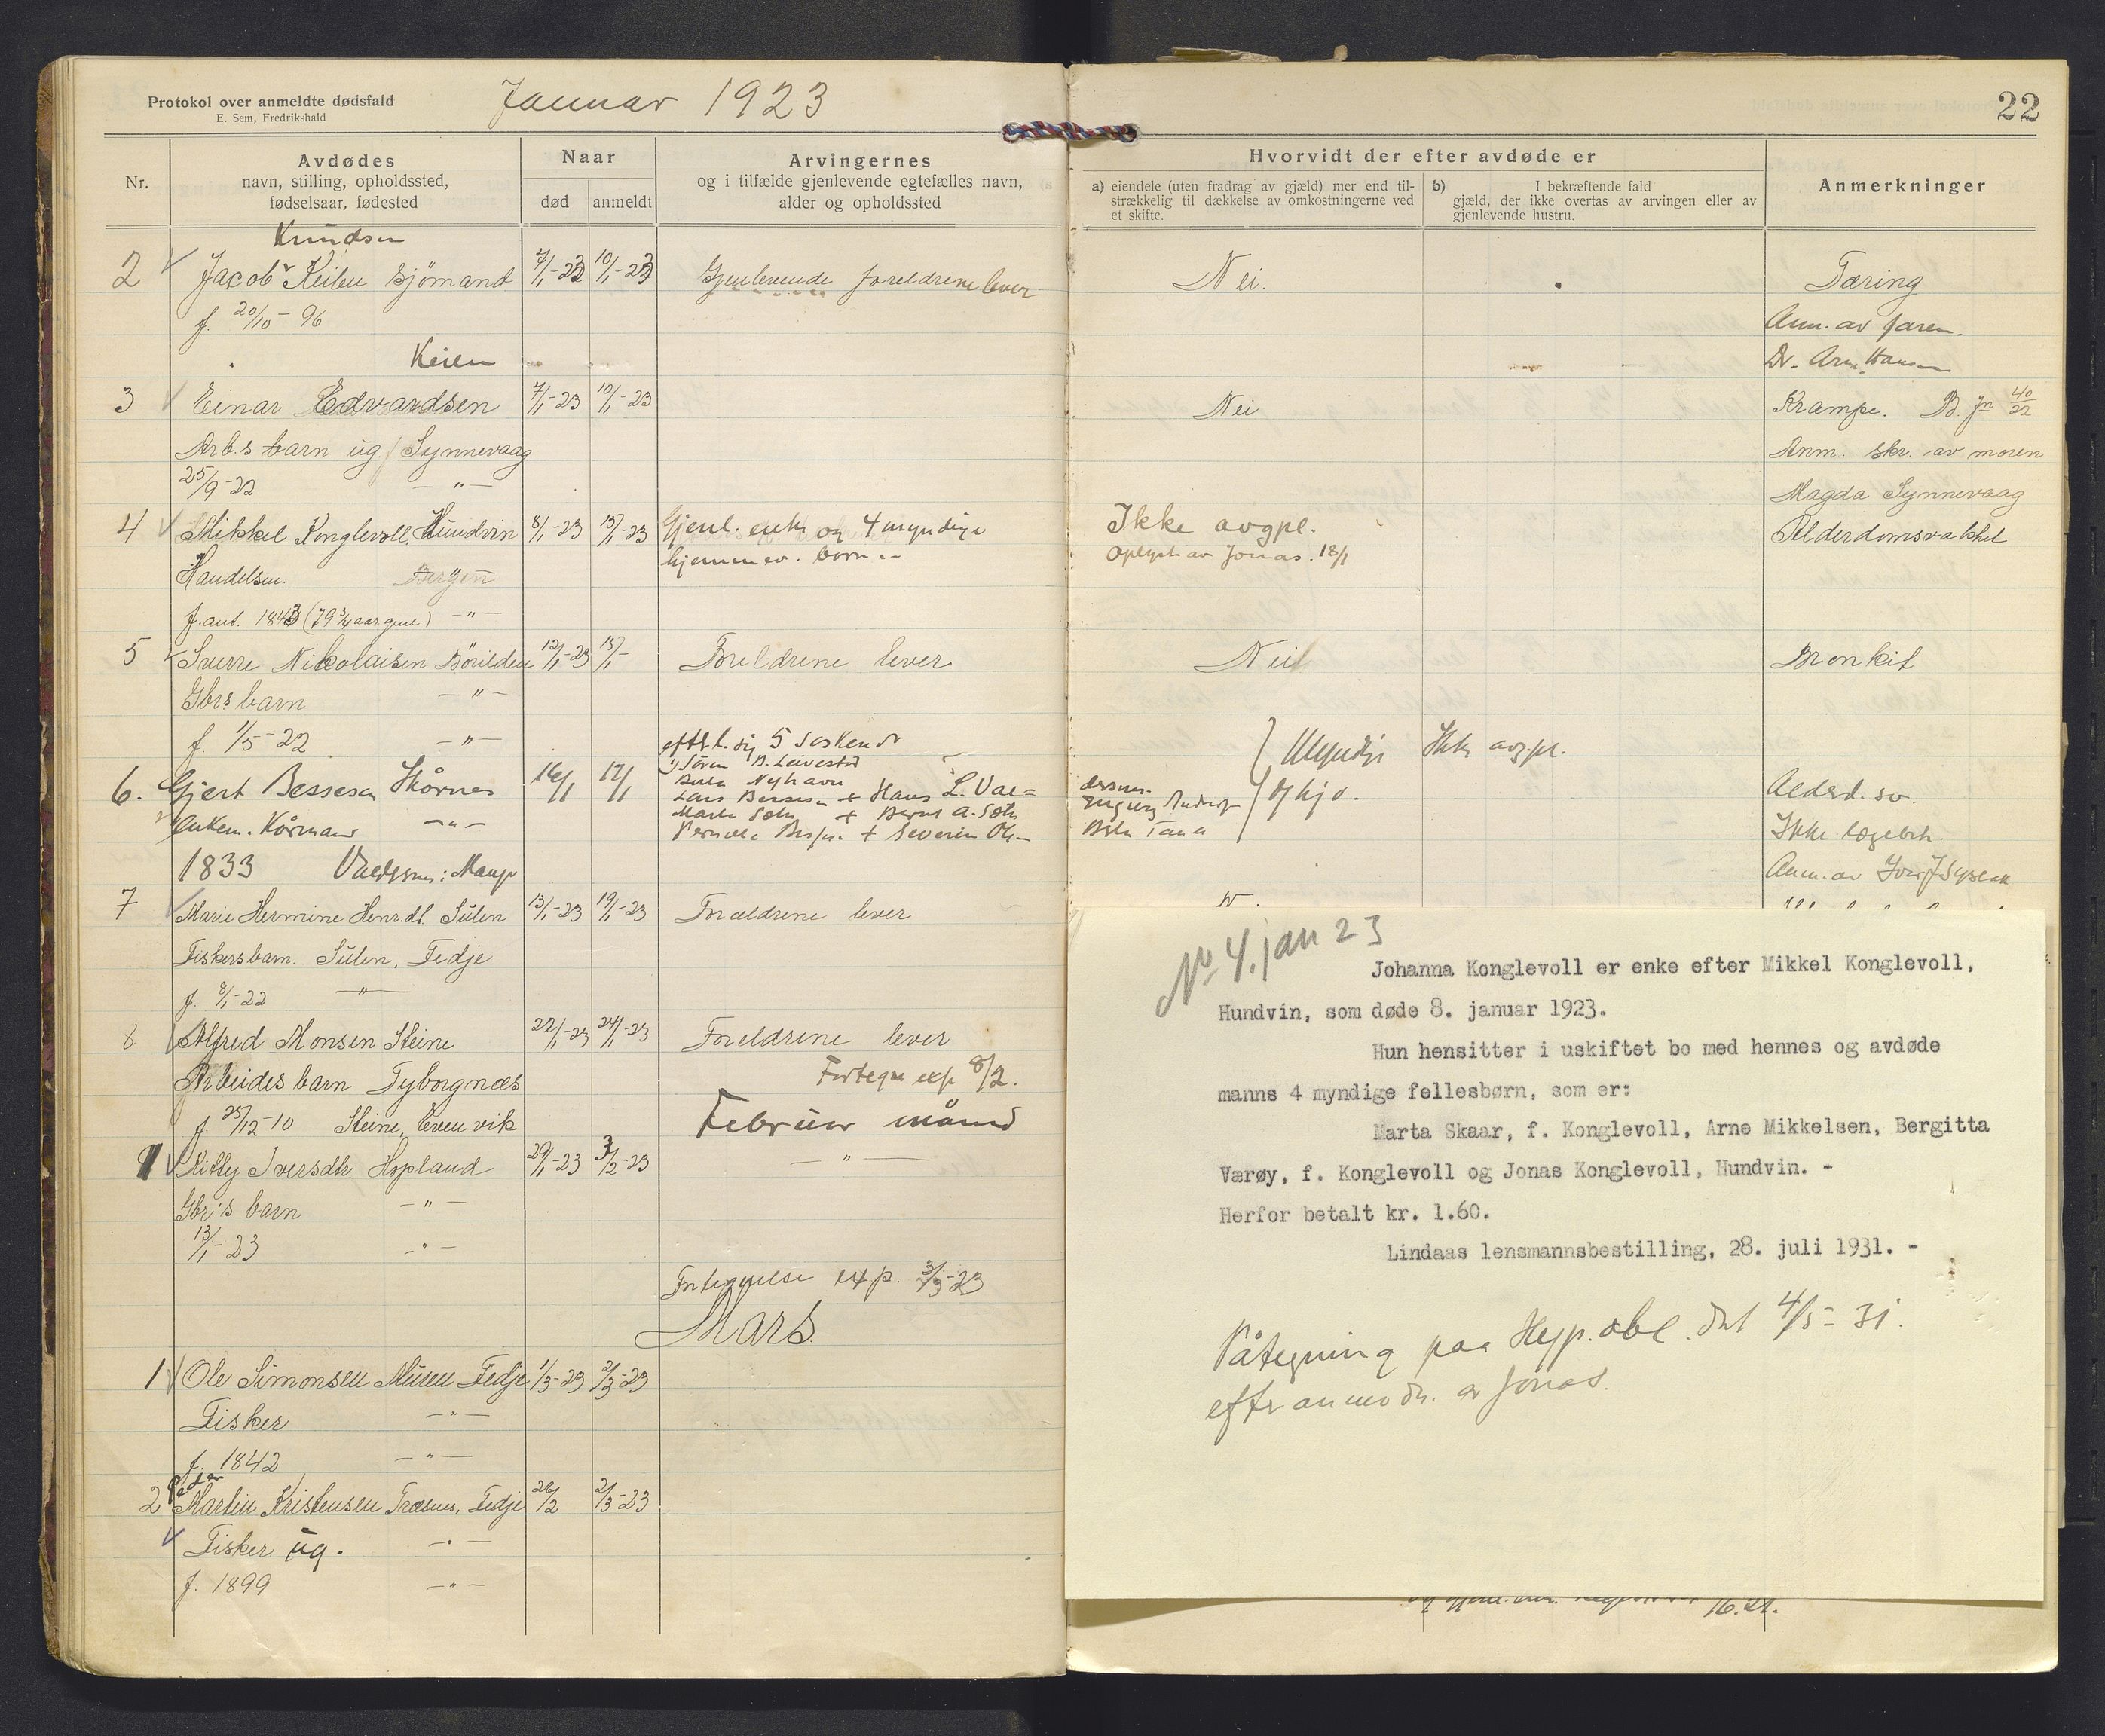 Protokol over anmeldte dødsfald
E. Sem, Fredrikshald
Januar 1923
Nr.
Avdødes
navn, stilling, opholdssted,
fødselsaar, fødested
Naar
død
anmeldt
Arvingernes
og i tilfælde gjenlevende egtefælles navn,
alder og opholdssted
Knudsen
2 Jacob Keilen Sjömand 7/1-23 10/1-23 Gjenlevende foreldrene lever
f. 20/10-96
Keilen
3 Einar Edvardsen 7/1-23 10/1-23
Arb.s barn ug. Synnevaag
25/9-22 - " -
4 Mikkel Konglevoll, Hundvin 8/1-23 13/1-23 Gjenl. enke og 4 myndige
Handelsm. Bergen hjemmev. born
f. ant. 1843 (79 3/4 aar gml) - " -
5 Sverre Nikolaisen Börilden 12/1-23 15/1- Foreldrene lever
Gbrs barn - " -
f. 1/5-22 - " -
6. Gjert Bessesen Skårnes 16/1 17/1
efterl. sig 5 søskende
Enkem. Kårmand - " -
1833
7 Marie Hermine Henr.dt. Sulen 13/1-23 19/1-23 Foreldrene lever
Fiskersbarn. Sulen, Fedje
f. 8/1-22 - " -
8 Alfred Monsen Steine 22/1-23 24/1-23 Foreldrene lever
Arbeides barn Tyborgnæs
Fortegn exp 8/2.
f. 25/12-10 Steine, Evenvik
Februar måned
1 Kitty Iversdtr. Hopland 29/1-23 3/2-23 - " -
Gbr's barn - " -
13/1-23 - " -
Fortegnelse exp. 3/3-23
Mars
1 Ole Simonsen Muren Fedje 1/3-23 2/3-23
Fisker - " -
f. 1842 - " -
Peder
2 Martin Kristensen Træsnes, Fedje 26/2 2/3-23
Fisker ug. - " -
f. 1899 - " -
22
Hvorvidt der efter avdøde er
a) eiendele (uten fradrag av gjæld) mer end til-
strækkelig til dækkelse av omkostningerne ved
et skifte.
b) I bekræftende fald
gjæld, der ikke overtas av arvingen eller av
gjenlevende hustru.
Anmerkninger
Nei. Tæring
Anm. av faren.
Dr. Arn. Hansen
Nei Krampe. B. jn 40/22
Anm. skr. av moren
Magda Synnevaag
Ikke avgpl. Alderdomsvakkel
Oplyst av Jonas. 18/1
Nei Bronkit
Myndige Ikke avg.pl.
og hjv. Alderd. sv.
Ikke lægebeh.
No 4. jan 23
Johanna Konglevoll er enke efter Mikkel Konglevoll,
Hundvin, som døde 8. januar 1923.
Hun hensitter i uskiftet bo med hennes og avdøde
manns 4 myndige fellesbørn, som er:
Marta Skaar, f. Konglevoll, Arne Mikkelsen, Bergitta
Værøy, f. Konglevoll og Jonas Konglevoll, Hundvin. -
Herfor betalt kr. 1.60.
Lindaas lensmannsbestilling, 28. juli 1931. -
Påtegning paa Hyp. obl. dat 4/5-31.
efter anmodn. av Jonas.